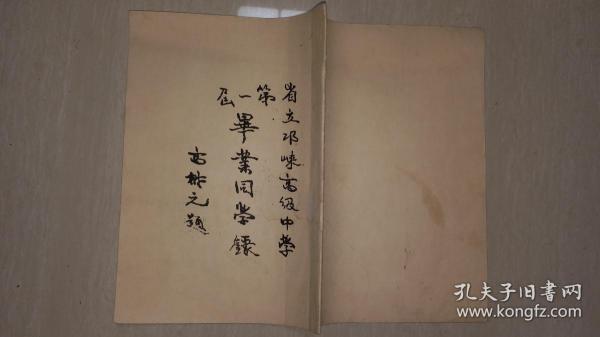 省立邛崍高级中学
第一届
畢業同学錄
高元題
孔夫子旧书网
www.kongfz.com